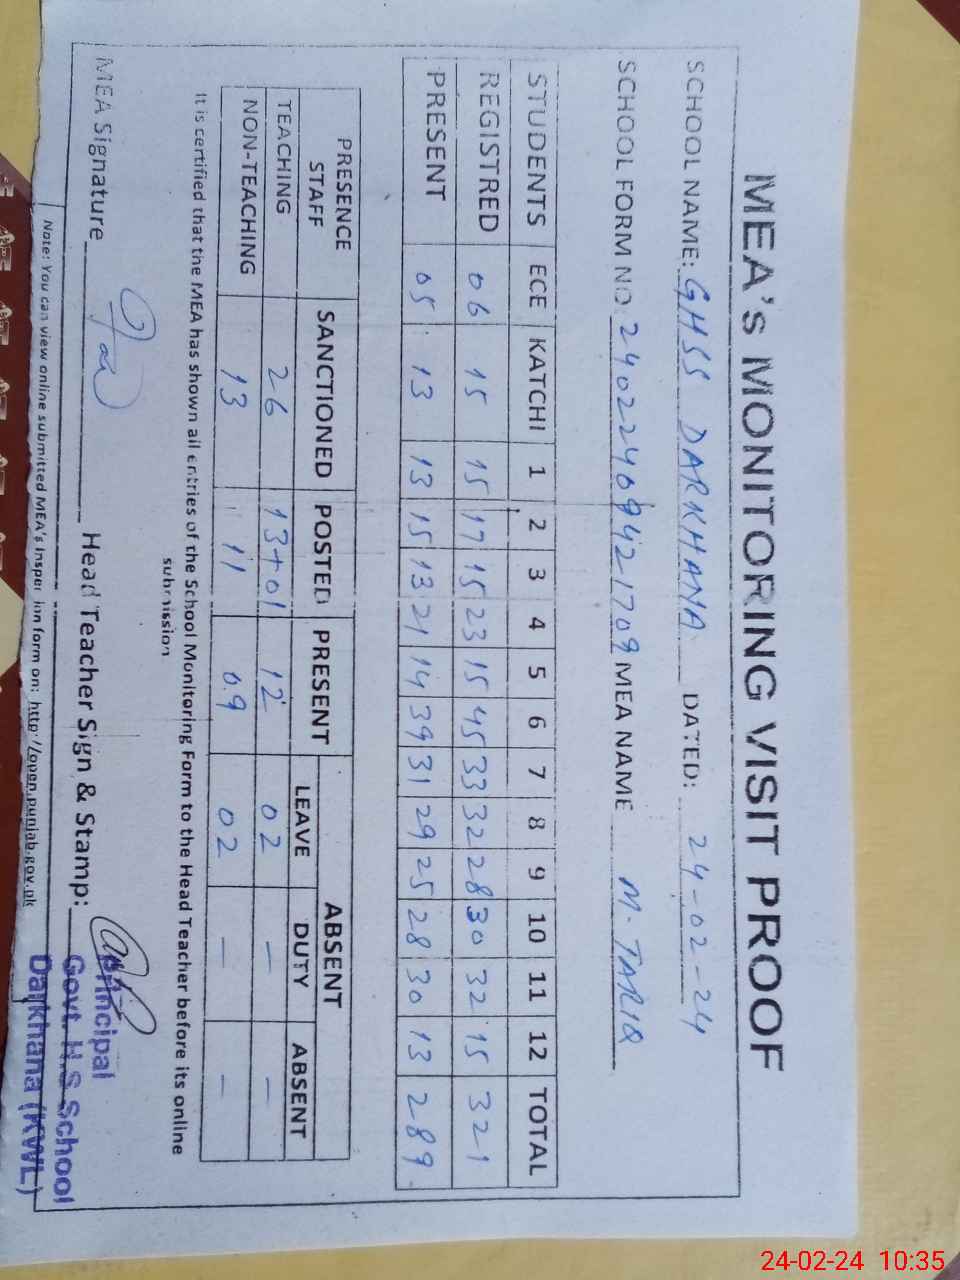 MEA's MONITORING VISIT PROOF
SCHOOL NAME: GHSS DARKHANA DATED: 24-02-24
SCHOOL FORM NO. 24022409421709 MEA NAME M. TARIQ
STUDENTS ECE KATCHI 1 2 3 4 5 6 7 8 9 10 11 12 TOTAL
REGISTRED 06 15 15 17 15 23 15 45 33 32 28 30 32 15 321
PRESENT 05 13 13 15 13 21 14 39 31 29 25 28 30 13 289
PRESENCE STAFF SANCTIONED POSTED PRESENT ABSENT
LEAVE DUTY ABSENT
TEACHING 26 13+01 12 02 — —
NON-TEACHING 13 11 09 02 — —
It is certified that the MEA has shown all entries of the School Monitoring Form to the Head Teacher before its online
submission
MEA Signature Head Teacher Sign & Stamp:
Principal
Govt. H.S School
Darkhana (KWL)
Note: You can view online submitted MEA's Inspection form on: http://open.punjab.gov.pk
24-02-24 10:35